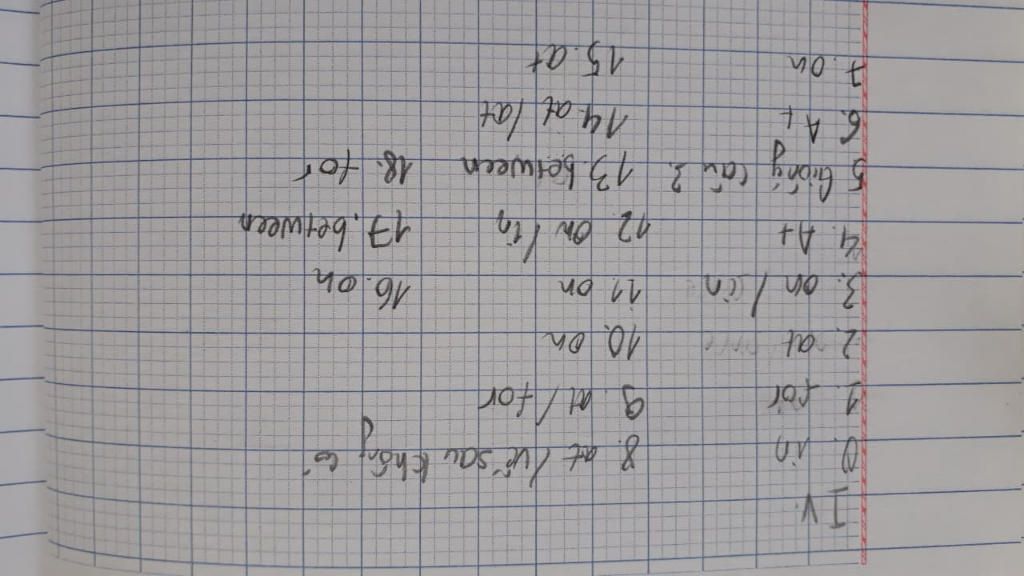 IV
0. in
1. for
2. at
3. on / in
4. At
5. Giống câu 3
6. At
7. on
8. at / vế sau không có
9. at / for
10. on
11. on
12. on / in
13. between
14. at / at
15. at
16. on
17. between
18. for